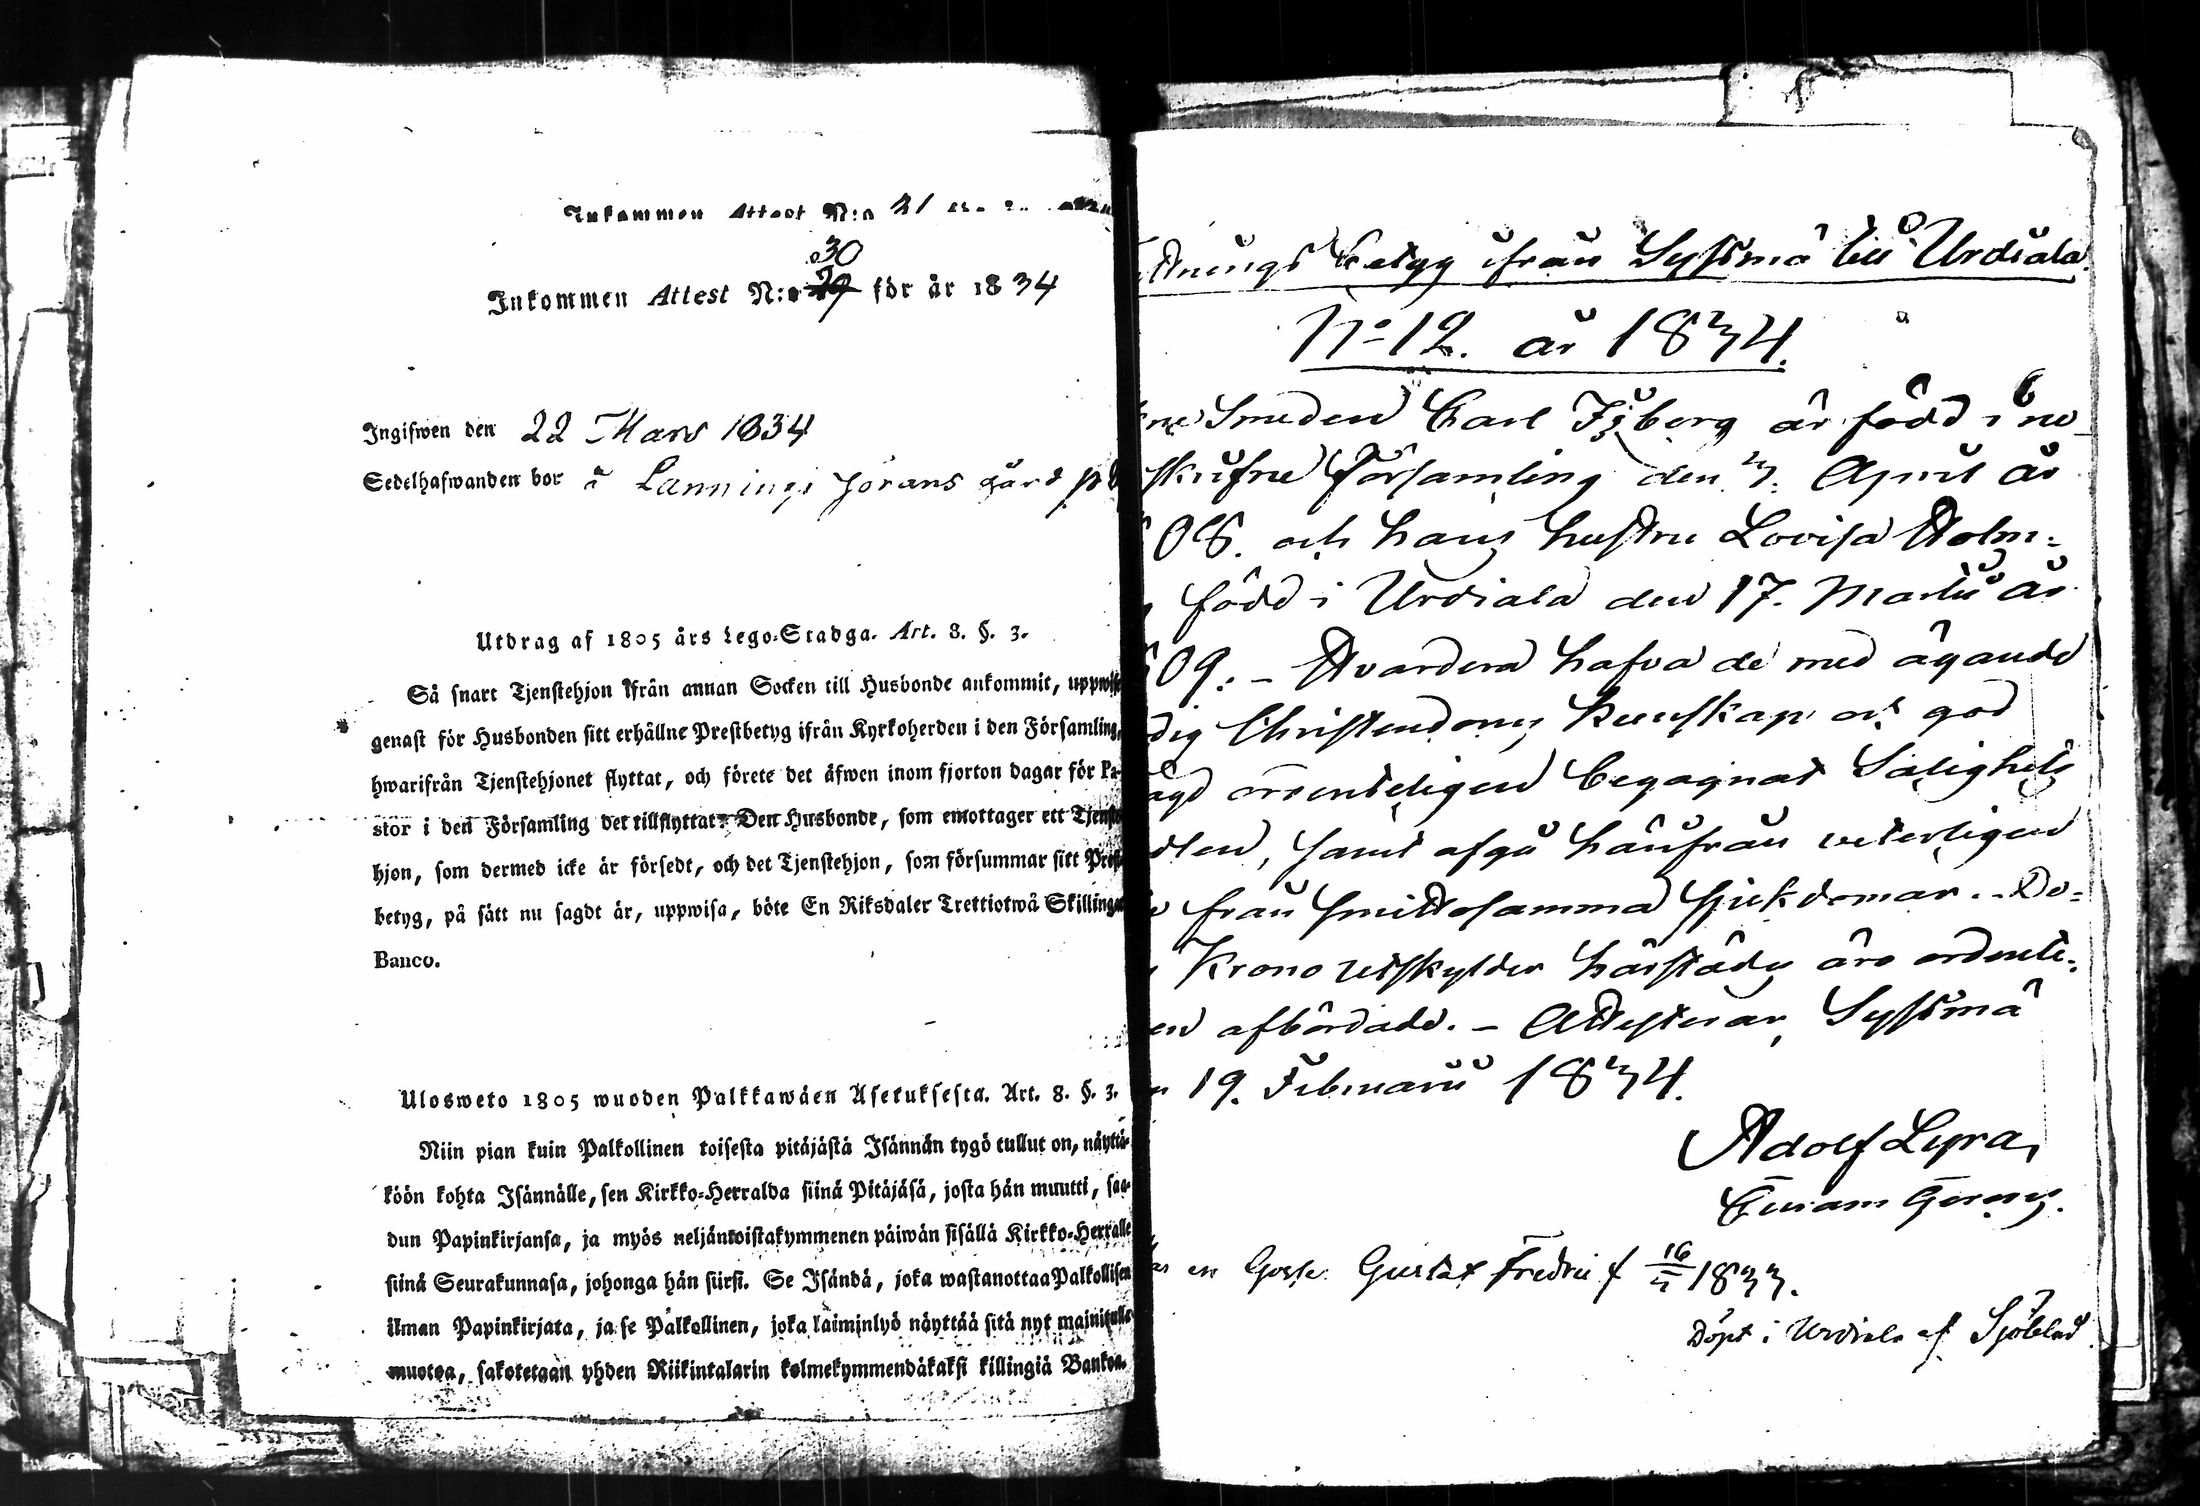 Inkommen Attest N:o 21
30
Inkommen Attest N:o 29 för år 1834
Ingifwen den 22 Mars 1834
Sedelhafwanden bor å Lanningi Jörans gård
Utdrag af 1805 års Lego-Stadga. Art. 8. §. 3.
Så snart Tjenstehjon ifrån annan Socken till Husbonde ankommit, uppwise
genast för Husbonden sitt erhållne Prestbetyg ifrån Kyrkoherden i den Församling,
hwarifrån Tjenstehjonet flyttat, och förete det äfwen inom fjorton dagar för Pa-
stor i den Församling det tillflyttat: Den Husbonde, som emottager ett Tjenste
hjon, som dermed icke är försedt, och det Tjenstehjon, som försummar sitt Prest
betyg, på sätt nu sagdt är, uppwisa, böte En Riksdaler Trettiotwå Skillingar
Banco.
Ulosweto 1805 wuoden Palkkawäen Asetuksesta. Art. 8. §. 3.
Niin pian kuin Palkollinen toisesta pitäjästä Isännän tygö tullut on, näyttä-
köön kohta Isännälle, sen Kirkko-Herralda siinä Pitäjäsä, josta hän muutti, saa-
dun Papinkirjansa, ja myös neljäntoistakymmenen päiwän sisällä Kirkko-Herralle
siinä Seurakunnasa, johonga hän siirsi. Se Isändä, joka wastanottaa Palkollisen
ilman Papinkirjata, ja se Palkollinen, joka laiminlyö näyttää sitä nyt mainitulla
muotoa, sakotetaan yhden Riikintalarin kolmekymmendäkaksi killingiä Bankoa.
ttnings betyg ifrån Syssmä till Urdiala.
No 12. år 1834.
Smeden Carl Isberg är född i ne
skrifne Församling den 3. April år
08. och hans hustru Lovisa Holm=
född i Urdiala den 17. Martii år
09. – Hvardera hafva de med ägande
dig Christendoms kunskap och god
ordenteligen begagnat Salighets
dlen, samt afgå härifrån veterligen
från smittosamma sjukdomar. – De=
Krono utskylder härstädes äro ordente=
en afbördade. – Attesterar, Syssmä
19. Februarii 1834.
Adolf Lyra,
en Gosse Gustaf Fredric f 16/11 1833.
Döpt i Urdiala af Sjöblad.